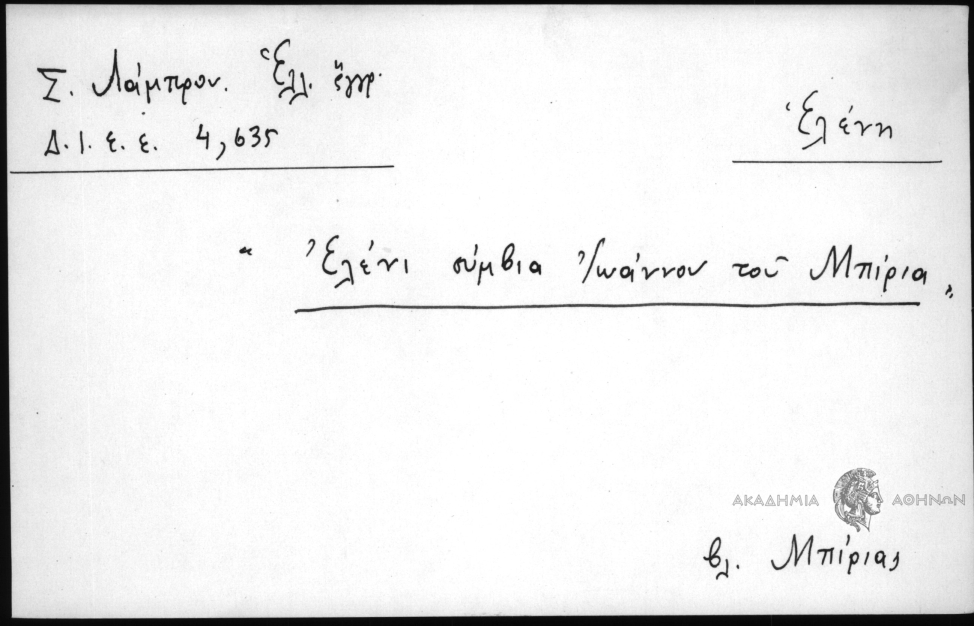 Σ. Λάμπρου. Ἑλλ. ἔγγρ.
Δ.Ι.Ε.Ε. 4,635
Ἑλένη
“ Ἐλένι σύμβια Ἰωάννου τοῦ Μπίρια „
ΑΚΑΔΗΜΙΑ ΑΘΗΝΩΝ
βλ. Μπίριας